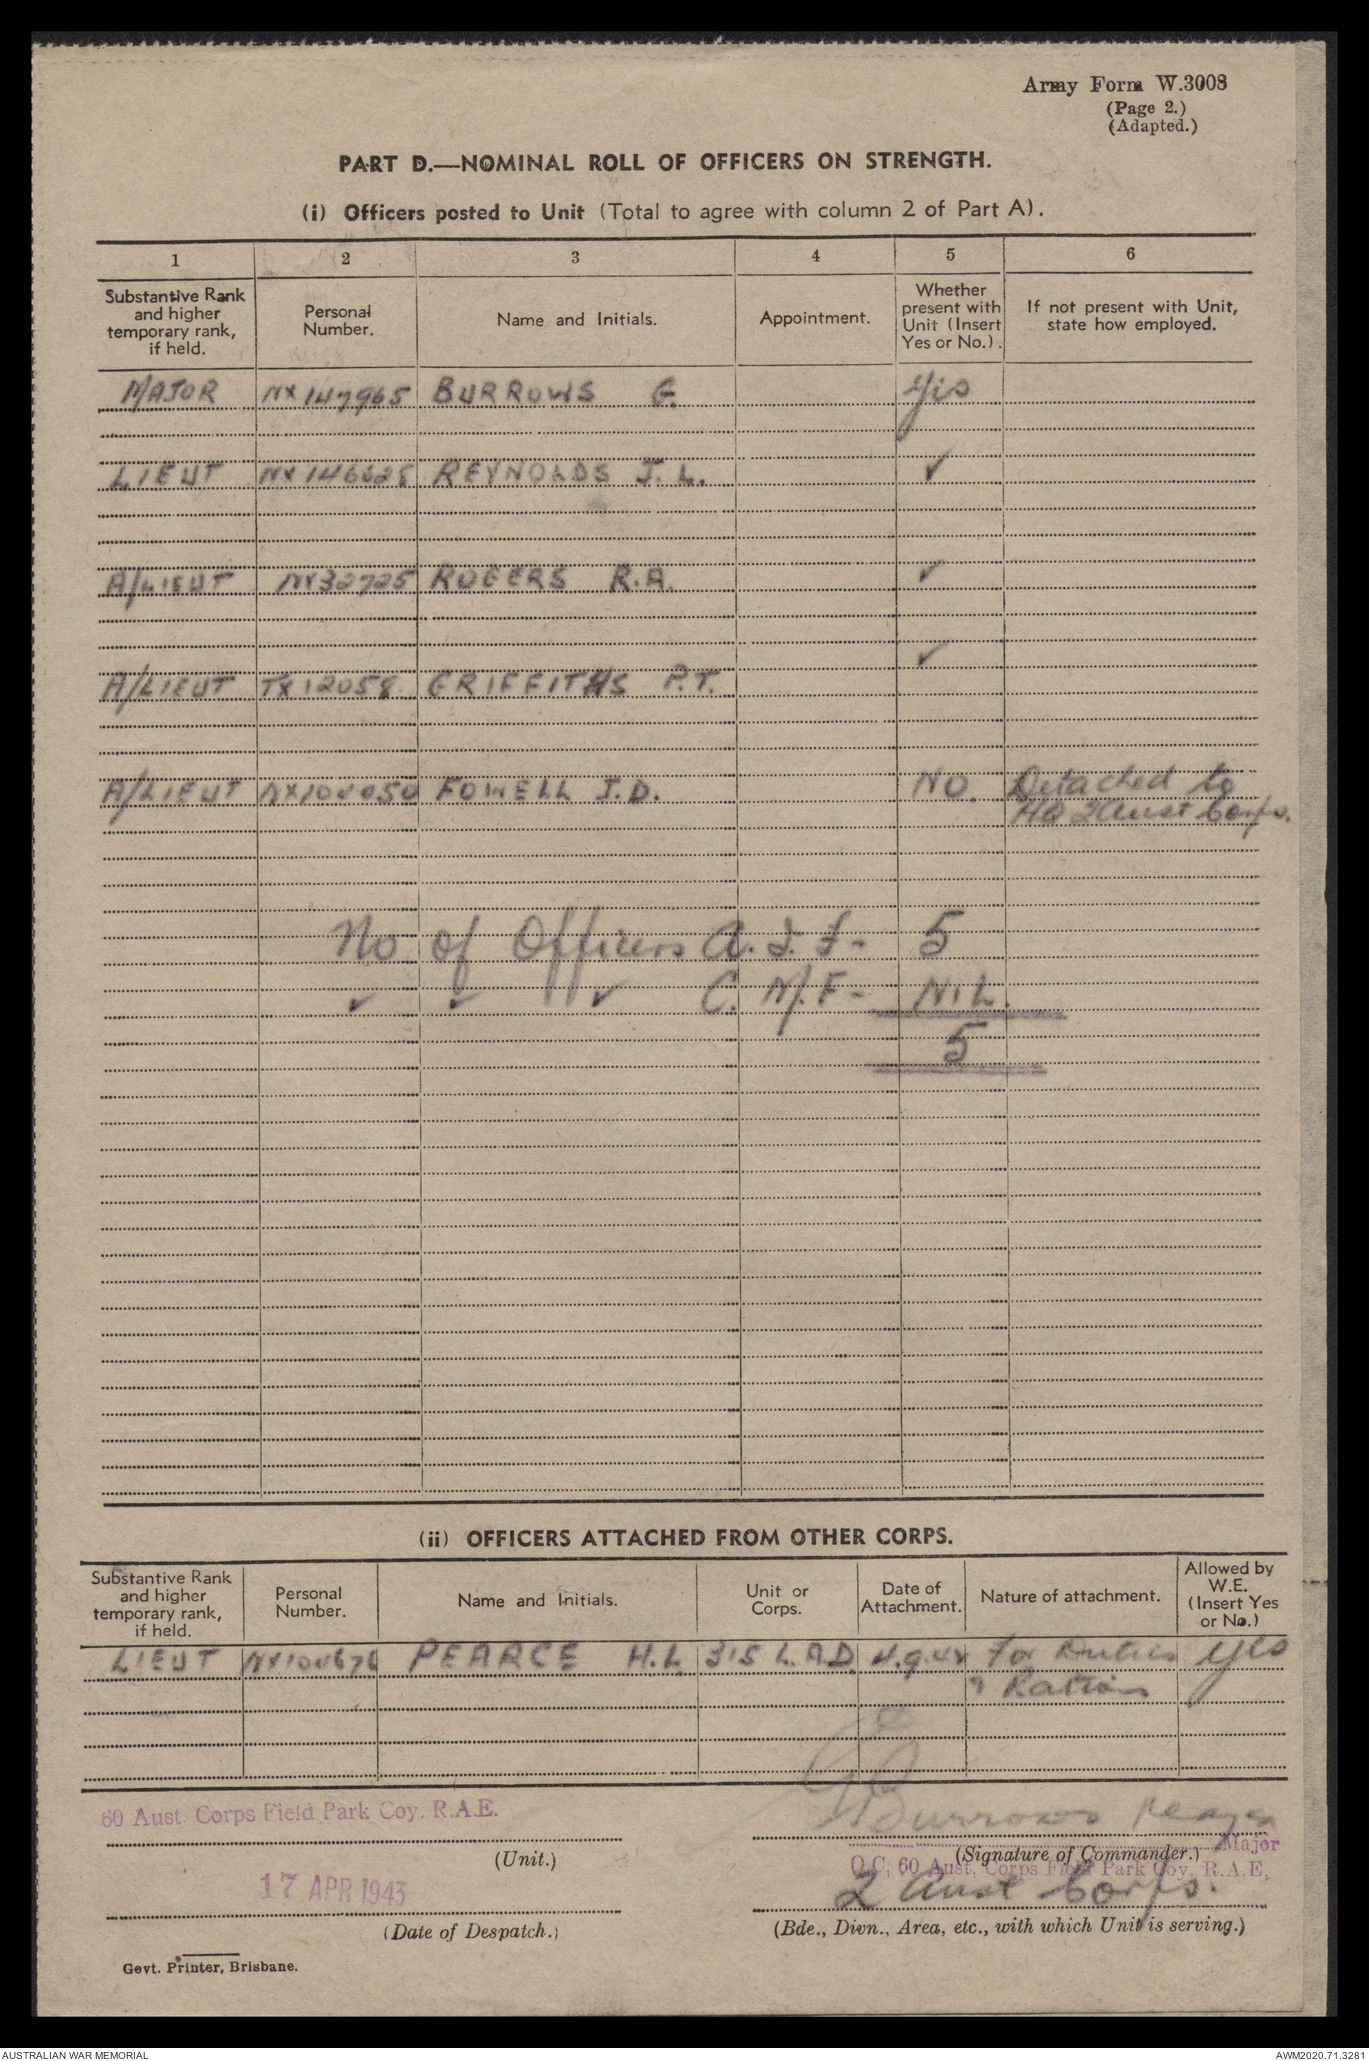 Army Form W.3008
(Page 2.)
(Adapted.)
PART D.—NOMINAL ROLL OF OFFICERS ON STRENGTH.
(i) Officers posted to Unit (Total to agree with column 2 of Part A).
1 2 3 4 5 6
Substantive Rank and higher temporary rank, if held. Personal Number. Name and Initials. Appointment. Whether present with Unit (Insert Yes or No.). If not present with Unit, state how employed.
MAJOR NX147965 BURROWS G. Yes
LIEUT NX146628 REYNOLDS J.L. ✓
A/LIEUT NX32725 ROGERS R.A. ✓
A/LIEUT TX12058 GRIFFITHS P.T. ✓
A/LIEUT FOWELL J.D. NO. Detached to
HQ 2 Aust Corps.
No of Officers A.I.F- 5
✓ ✓ ✓ C.M.F- NIL.
5
(ii) OFFICERS ATTACHED FROM OTHER CORPS.
Substantive Rank and higher temporary rank, if held. Personal Number. Name and Initials. Unit or Corps. Date of Attachment. Nature of attachment. Allowed by W.E. (Insert Yes or No.)
LIEUT PEARCE H.L 315 L.A.D. 4.9.42 for Duties Yes
& Rations
60 Aust. Corps Field Park Coy. R.A.E.
(Unit.)
17 APR 1943
(Date of Despatch.)
G Burrows Major
Major
(Signature of Commander.)
O.C. 60 Aust. Corps Field Park Coy. R.A.E.
2 Aust Corps.
(Bde., Divn., Area, etc., with which Unit is serving.)
Govt. Printer, Brisbane.
AUSTRALIAN WAR MEMORIAL
AWM2020.71.3281